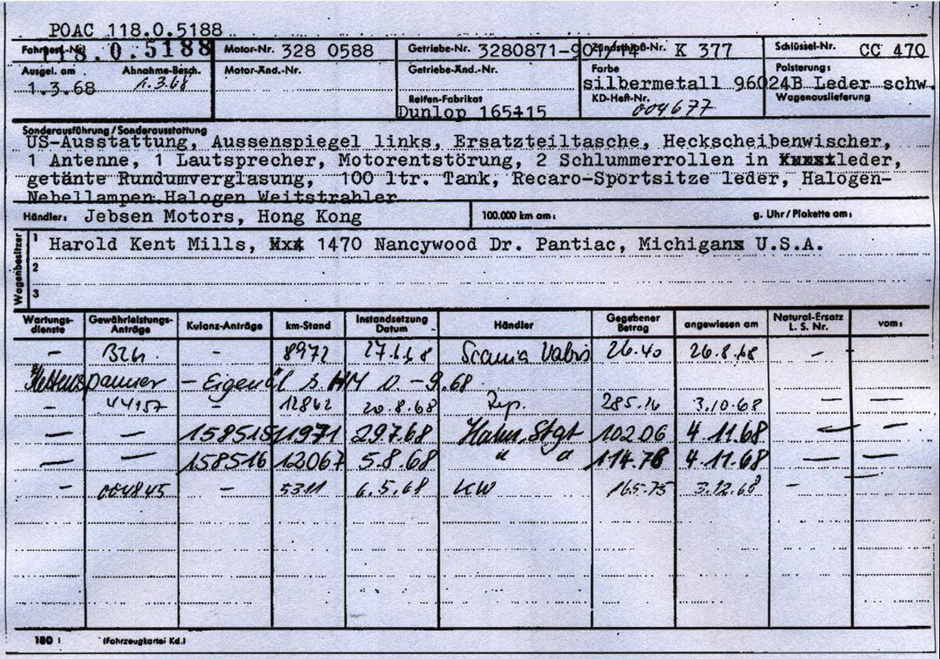 POAC 118.0.5188
Fahrgest.-Nr. 118.0.5188 Motor-Nr. 328 0588 Getriebe-Nr. 3280871-907/14 Zündschloß-Nr. K 377 Schlüssel-Nr. CC 470
Ausgel. am Abnahme-Besch. Motor-Änd.-Nr. Getriebe-Änd.-Nr. Farbe Polsterung:
1.3.68 1.3.68 silbermetall 96024B Leder schw.
Reifen-Fabrikat KD-Heft-Nr. Wagenauslieferung
Dunlop 165415 004677
Sonderausführung/Sonderausstattung
US-Ausstattung, Aussenspiegel links, Ersatzteiltasche, Heckscheibenwischer,
1 Antenne, 1 Lautsprecher, Motorentstörung, 2 Schlummerrollen in leder,
getänte Rundumverglasung, 100 ltr. Tank, Recaro-Sportsitze leder, Halogen-
Nebellampen,Halogen Weitstrahler
Händler: Jebsen Motors, Hong Kong 100.000 km am: g. Uhr/Plakette am:
Wagenbesitzer
1 Harold Kent Mills, 1470 Nancywood Dr. Pantiac, Michigan U.S.A.
2
3
Wartungs-dienste Gewährleistungs-Anträge Kulanz-Anträge km-Stand Instandsetzung Datum Händler Gegebener Betrag angewiesen am Natural-Ersatz L. S. Nr. vom:
– – 8972 Scania Vabis 26.40 26.8.68 –
– 9.68
– 44157 – 12862 20.8.68 Rep. 285.16 3.10.68 – –
– – 158515 11971 29.7.68 Hahn, Stgt 102.06 4.11.68 – –
– – 158516 12067 5.8.68 " " 114.78 4.11.68 – –
– 004845 – 5311 6.5.68 KW 165.75 3.12.68 –
180 I (Fahrzeugkartei Kd.)